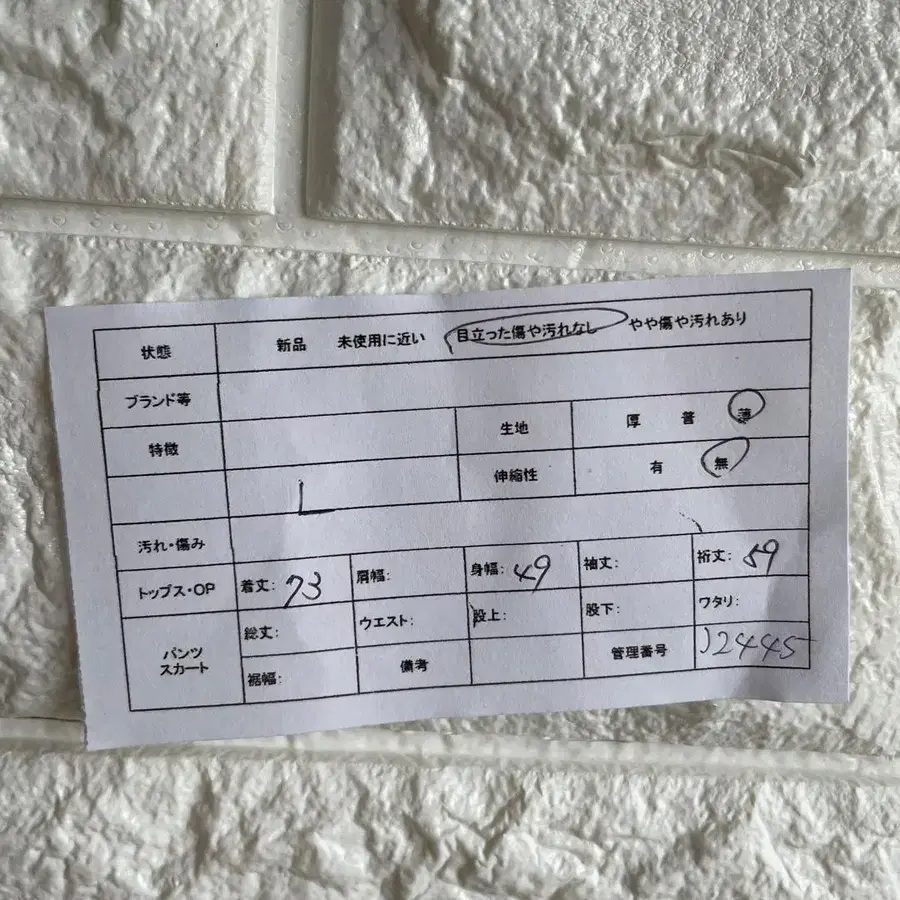 状態 新品 未使用に近い 目立った傷や汚れなし やや傷や汚れあり
ブランド等
特徴 生地 厚 普 薄
L 伸縮性 有 無
汚れ・傷み
トップス・OP 着丈: 73 肩幅: 身幅: 49 袖丈: 裄丈: 59
パンツ スカート 総丈: ウエスト: 股上: 股下: ワタリ:
裾幅: 備考 管理番号 J2445